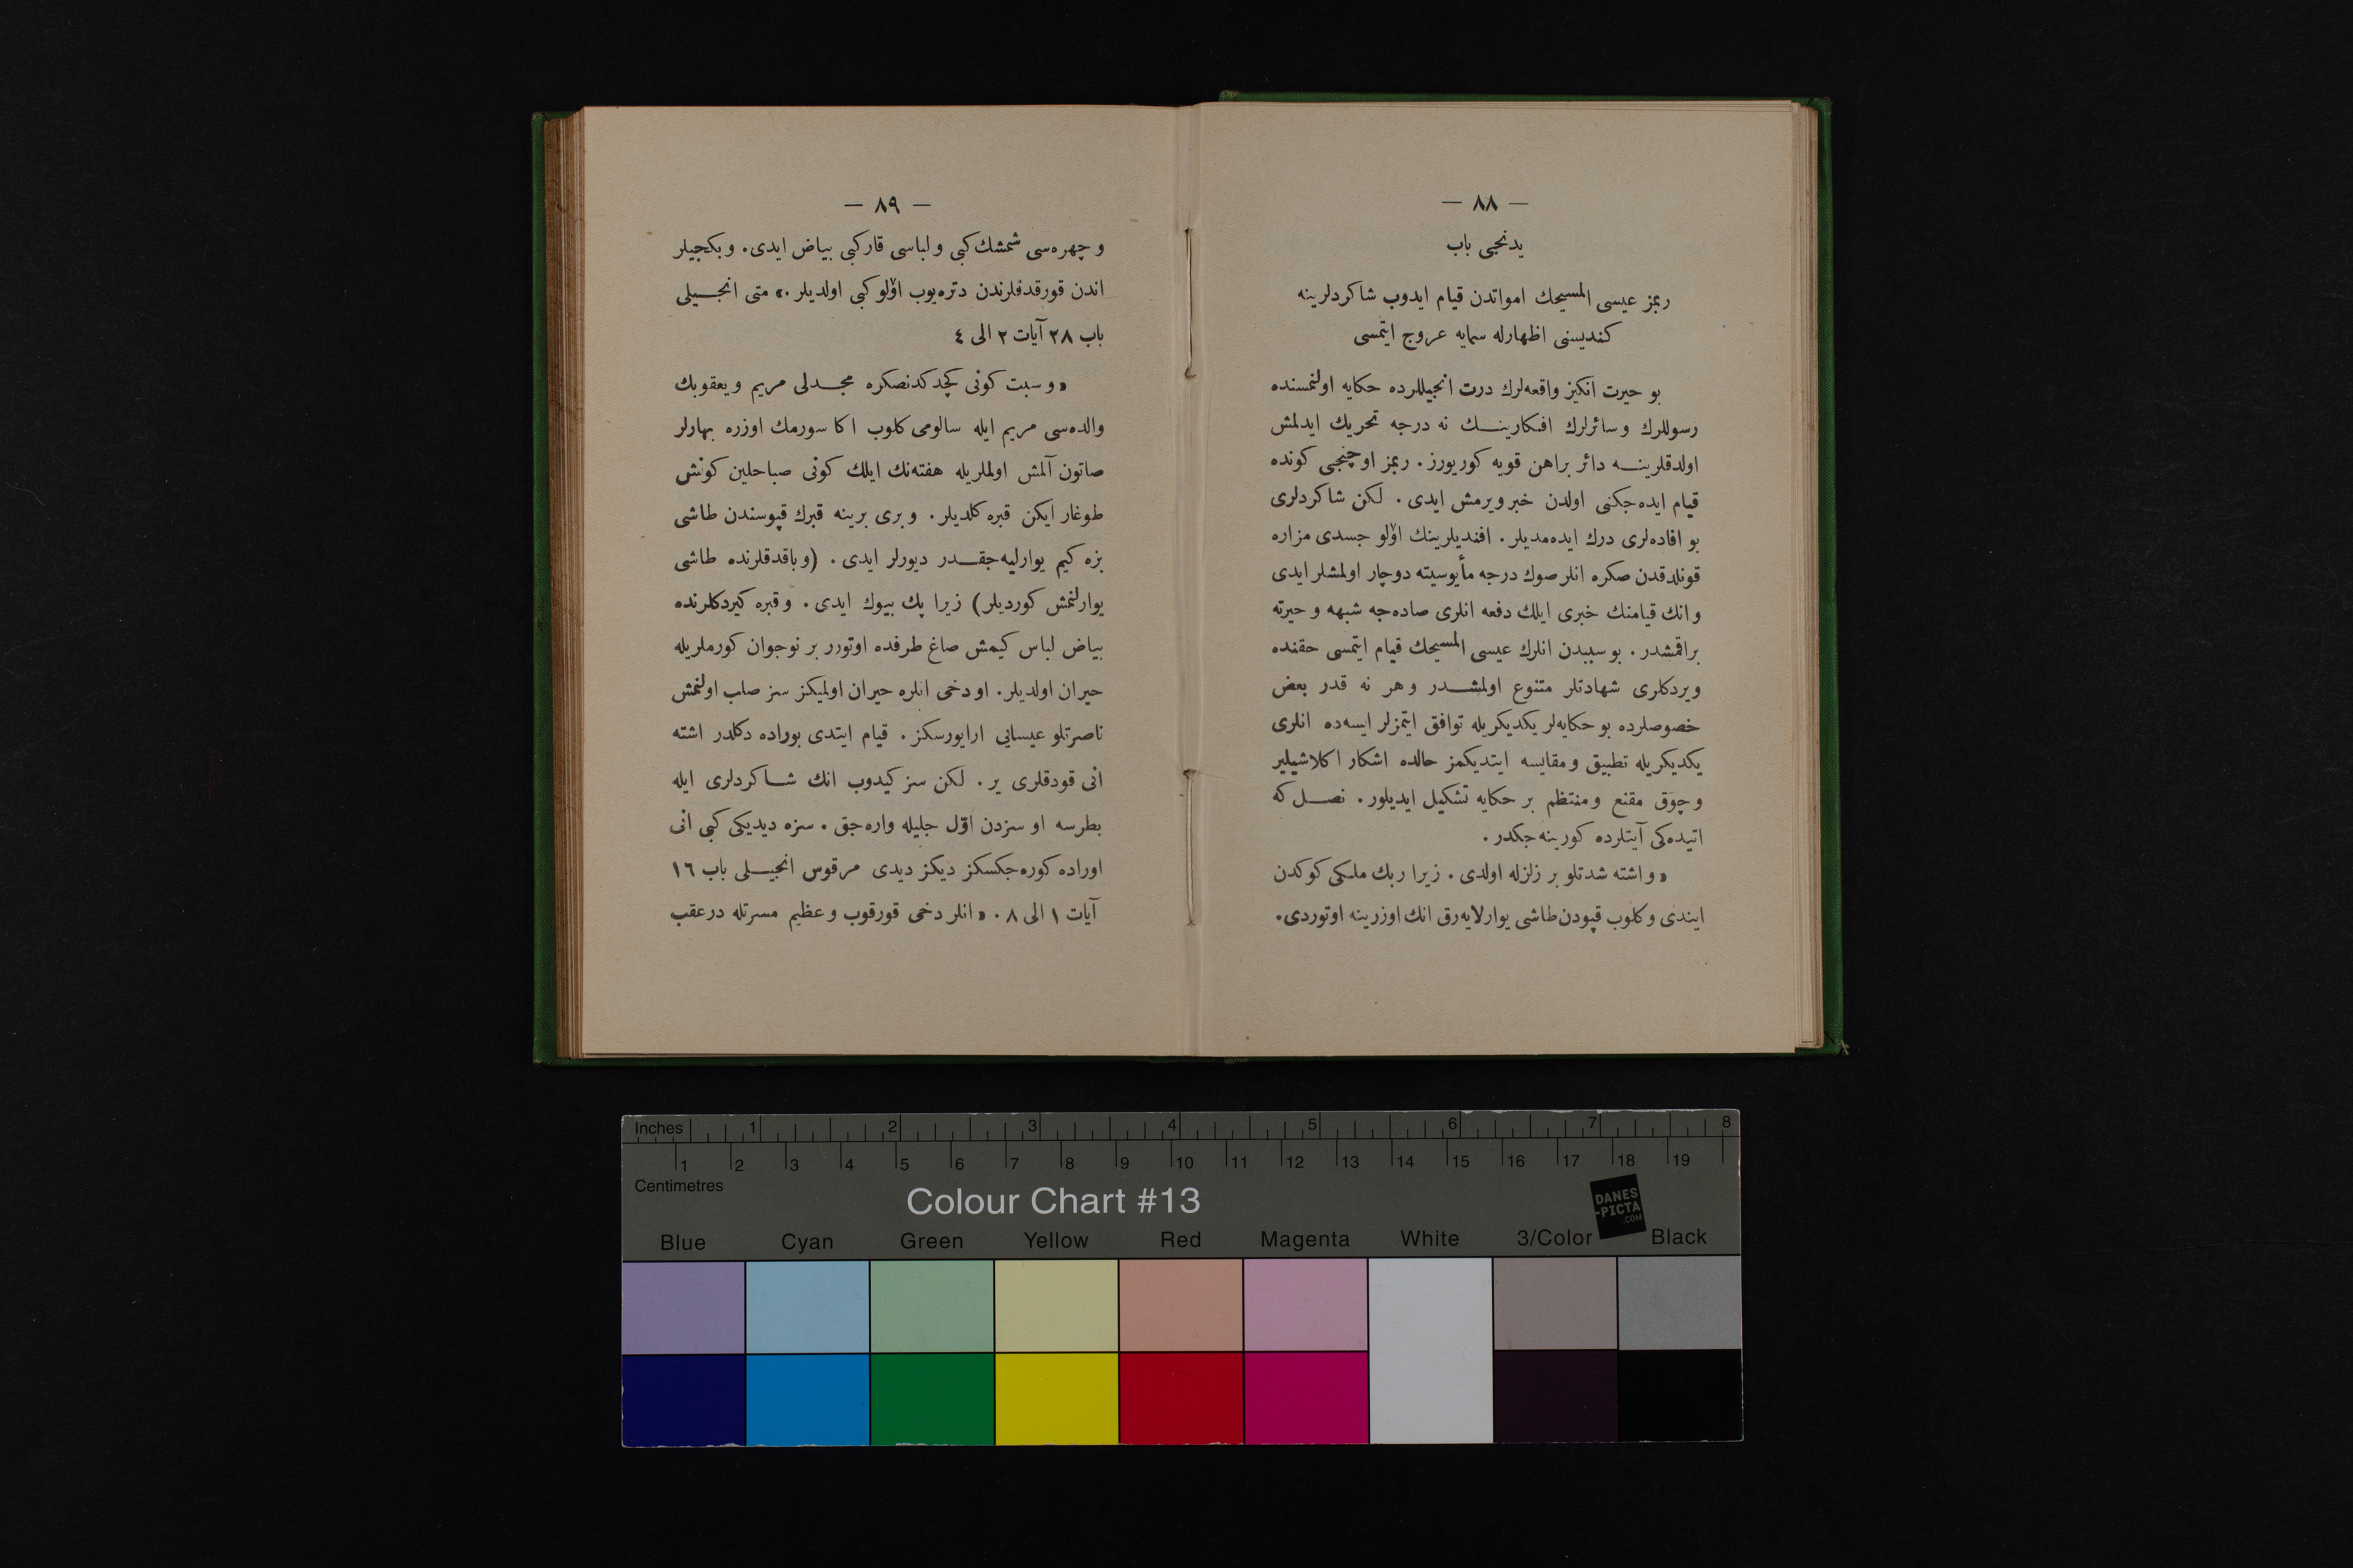 — ٨٨ —
يدنجى باب
ربمز عيسى المسيحك امواتدن قيام ايدوب شاكردلرينه
كنديسنى اظهارله سمايه عروج ايتمسى
بو حيرت انكيز واقعه‌لرك درت انجيللرده حكايه اولنمسنده
رسوللرك وسائرلرك افكارينك نه درجه تحريك ايدلمش
اولدقلرينه دائر براهن قويه كوريورز . ربمز اوچنجى كونده
قيام ايده‌جكنى اولدن خبر ويرمش ايدى . لكن شاكردلرى
بو افاده‌لرى درك ايده‌مديلر . افنديلرينك اۆلو جسدى مزاره
قونلدقدن صكره انلر صوك درجه مأيوسيته دوچار اولمشلر ايدى
وانك قيامنك خبرى ايلك دفعه انلرى صاده‌جه شبهه و حيرته
براقمشدر . بو سببدن انلرك عيسى المسيحك قيام ايتمسى حقنده
ويردكلرى شهادتلر متنوع اولمشدر وهر نه قدر بعض
خصوصلرده بو حكايه‌لر يكديكريله توافق ايتمزلر ايسه‌ده انلرى
يكديكريله تطبيق ومقايسه ايتديكمز حالده اشكار اكلاشيلير
وچوق مقنع ومنتظم بر حكايه تشكيل ايديلور . نصل كه
اتيده‌كى آيتلرده كورينه‌جكدر .
« واشته شدتلو بر زلزله اولدى . زيرا ربك ملكى كوكدن
ايندى وكلوب قپودن طاشى يوارلايه‌رق انك اوزرينه اوتوردى .
— ٨٩ —
و چهره‌سى شمشك كبى ولباسى قار كبى بياض ايدى . وبكجيلر
اندن قورقدقلرندن دتره‌يوب اۆلو كبى اولديلر . » متى انجيلى
باب ٢٨ آيات ٢ الى ٤
« وسبت كونى كچدكدنصكره مجدلى مريم ويعقوبك
والده‌سى مريم ايله سالومى كلوب اكا سورمك اوزره بهارلر
صاتون آلمش اولملريله هفته‌نك ايلك كونى صباحلين كونش
طوغار ايكن قبره كلديلر . وبرى برينه قبرك قپوسندن طاشى
بزه كيم يوارليه‌جقدر ديورلر ايدى . (وباقدقلرنده طاشى
يوارلنمش كورديلر) زيرا پك بيوك ايدى . وقبره كيردكلرنده
بياض لباس كيمش صاغ طرفده اوتورر بر نوجوان كورملريله
حيران اولديلر . او دخى انلره حيران اولميكز سز صلب اولنمش
ناصرتلو عيسايى ارايورسكز . قيام ايتدى بوراده دكلدر اشته
انى قودقلرى ير . لكن سز كيدوب انك شاكردلرى ايله
بطرسه او سزدن اوّل جليله واره‌جق . سزه ديديكى كبى انى
اوراده كوره‌جكسكز ديكز ديدى مرقوس انجيلى باب ١٦
آيات ١ الى ٨ . « انلر دخى قورقوب وعظيم مسرتله درعقب
Inches 1 2 3 4 5 6 7 8
1 2 3 4 5 6 7 8 9 10 11 12 13 14 15 16 17 18 19
Centimetres
Colour Chart #13
DANES
-PICTA
.COM
Blue Cyan Green Yellow Red Magenta White 3/Color Black